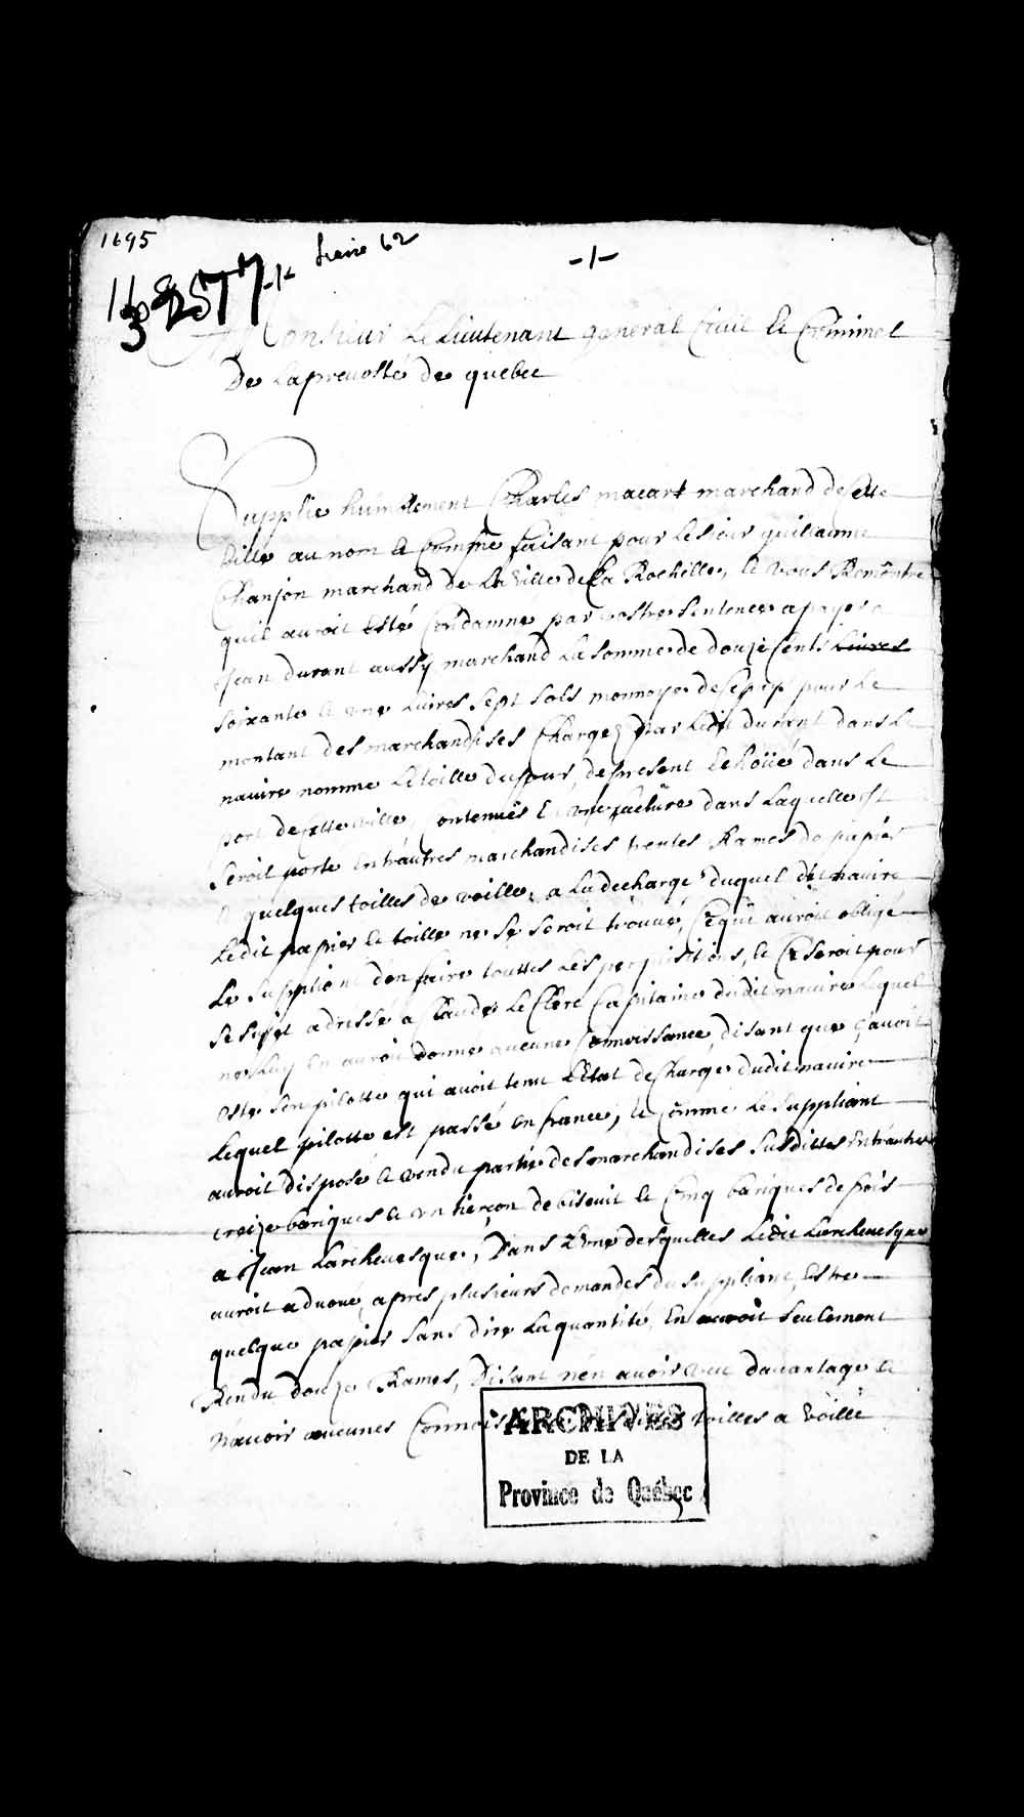 1695
Serie 62
-1-
Monsieur Le Lieutenant general Civil Et Criminel
De La prevosté de quebec
Supplie humblement Charles macart marchand de Cette
Ville au nom & Comme faisant pour le sieur guillaume
Chanjon marchand de La Ville de La Rochelle, Et vous Remontre
quil auroit Esté Condamne par vostre sentence a payer a
Jean durant aussy marchand La somme de douze Cents livres
soixante Et une Livres sept sols monnoye de Ce païs pour Le
montant des marchandises Chargez par Ledit durant dans Le
navire nomme L'etoille du jour, de present Echoüé dans Le
port de Cette ville, Contenuës En une facture dans Laquelle Est
seroit porté Entr'autres marchandises trentes Rames de papier
& quelques toilles de voille, a La decharge duquel dit navire
Ledit papier Et toille ne se seroit trouvé, Ce qui auroit obligé
Le suppliant d'en faire touttes Les perquisitions, Et Ce seroit pour
Ce sujet adressé a Claude Le Clerc Capitaine dudit navire Lequel
ne Luy En auroit donné aucune Connoissance, disant que C'auoit
Esté son pilotte qui auoit tenu L'Etat de Charge dudit navire
Lequel pilotte est passé En france, Et Comme Le suppliant
auroit disposé & vendu partie des marchandises susdittes Entr'autres
treize bariques & un tierçon de biscuit Et Cinq bariques de pois
a Jean Larchevesque, Dans L'une desquelles Ledit Larchevesque
auroit advoué, apres plusieurs demandes du suppliant, Estre
quelque papier sans dire La quantité, En auroit seulement
Rendu douze Rames, Disant n'en avoir veu davantage &
n'avoir aucunes toilles a voille
ARCHIVES
DE LA
Province de Québec